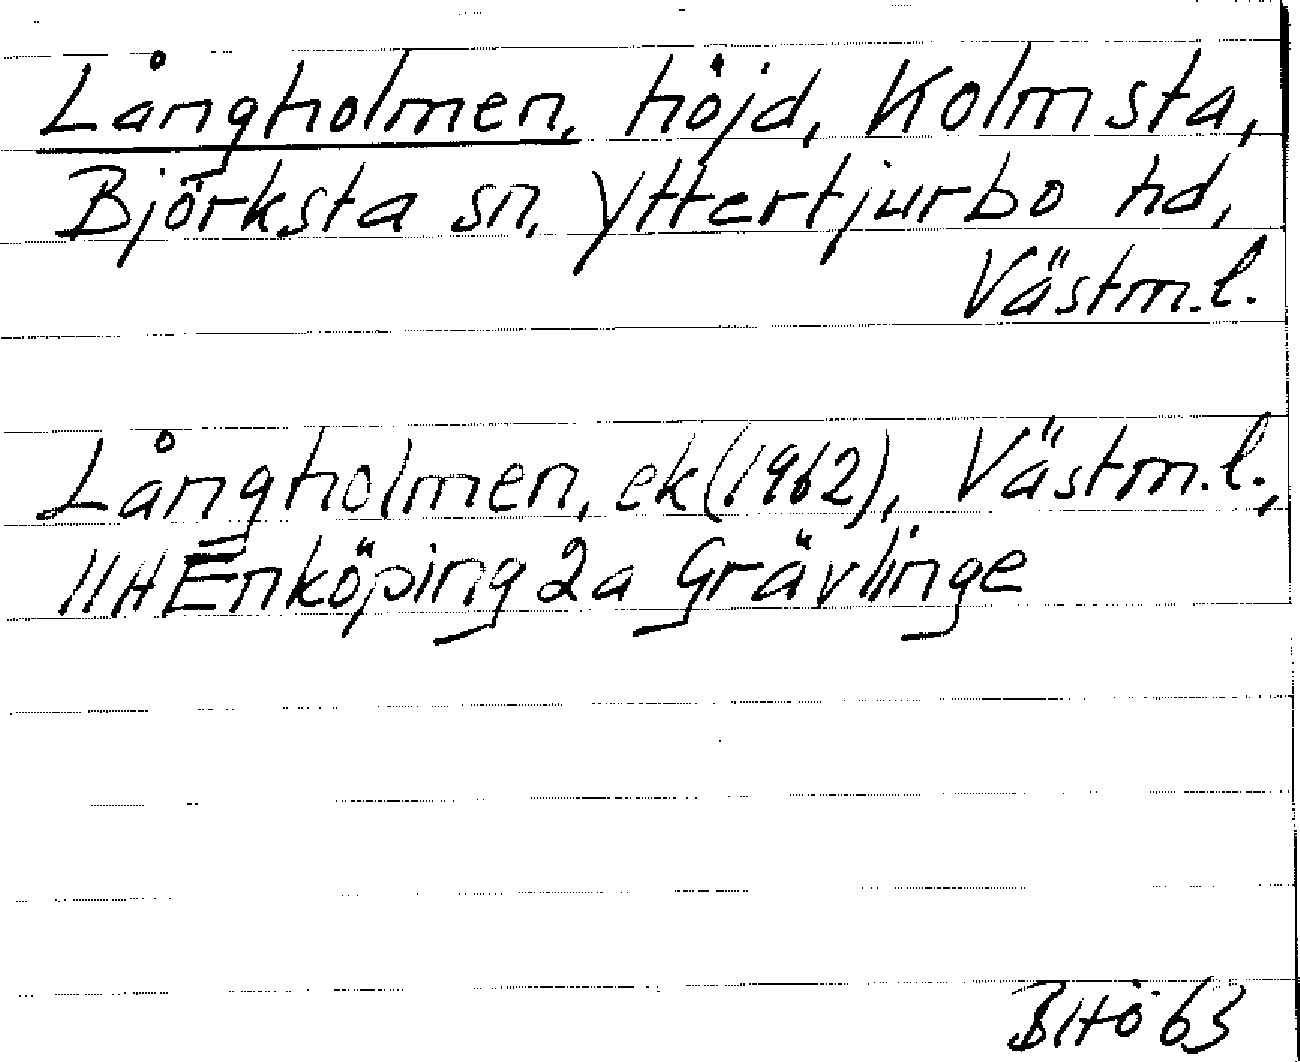 Långholmen, höjd, Kolmsta,
Björksta sn, Yttertjurbo hd,
Västm.l.
Långholmen, ek (1962), Västm.l.,
11H Enköping 2a Grävlinge
BHö 63